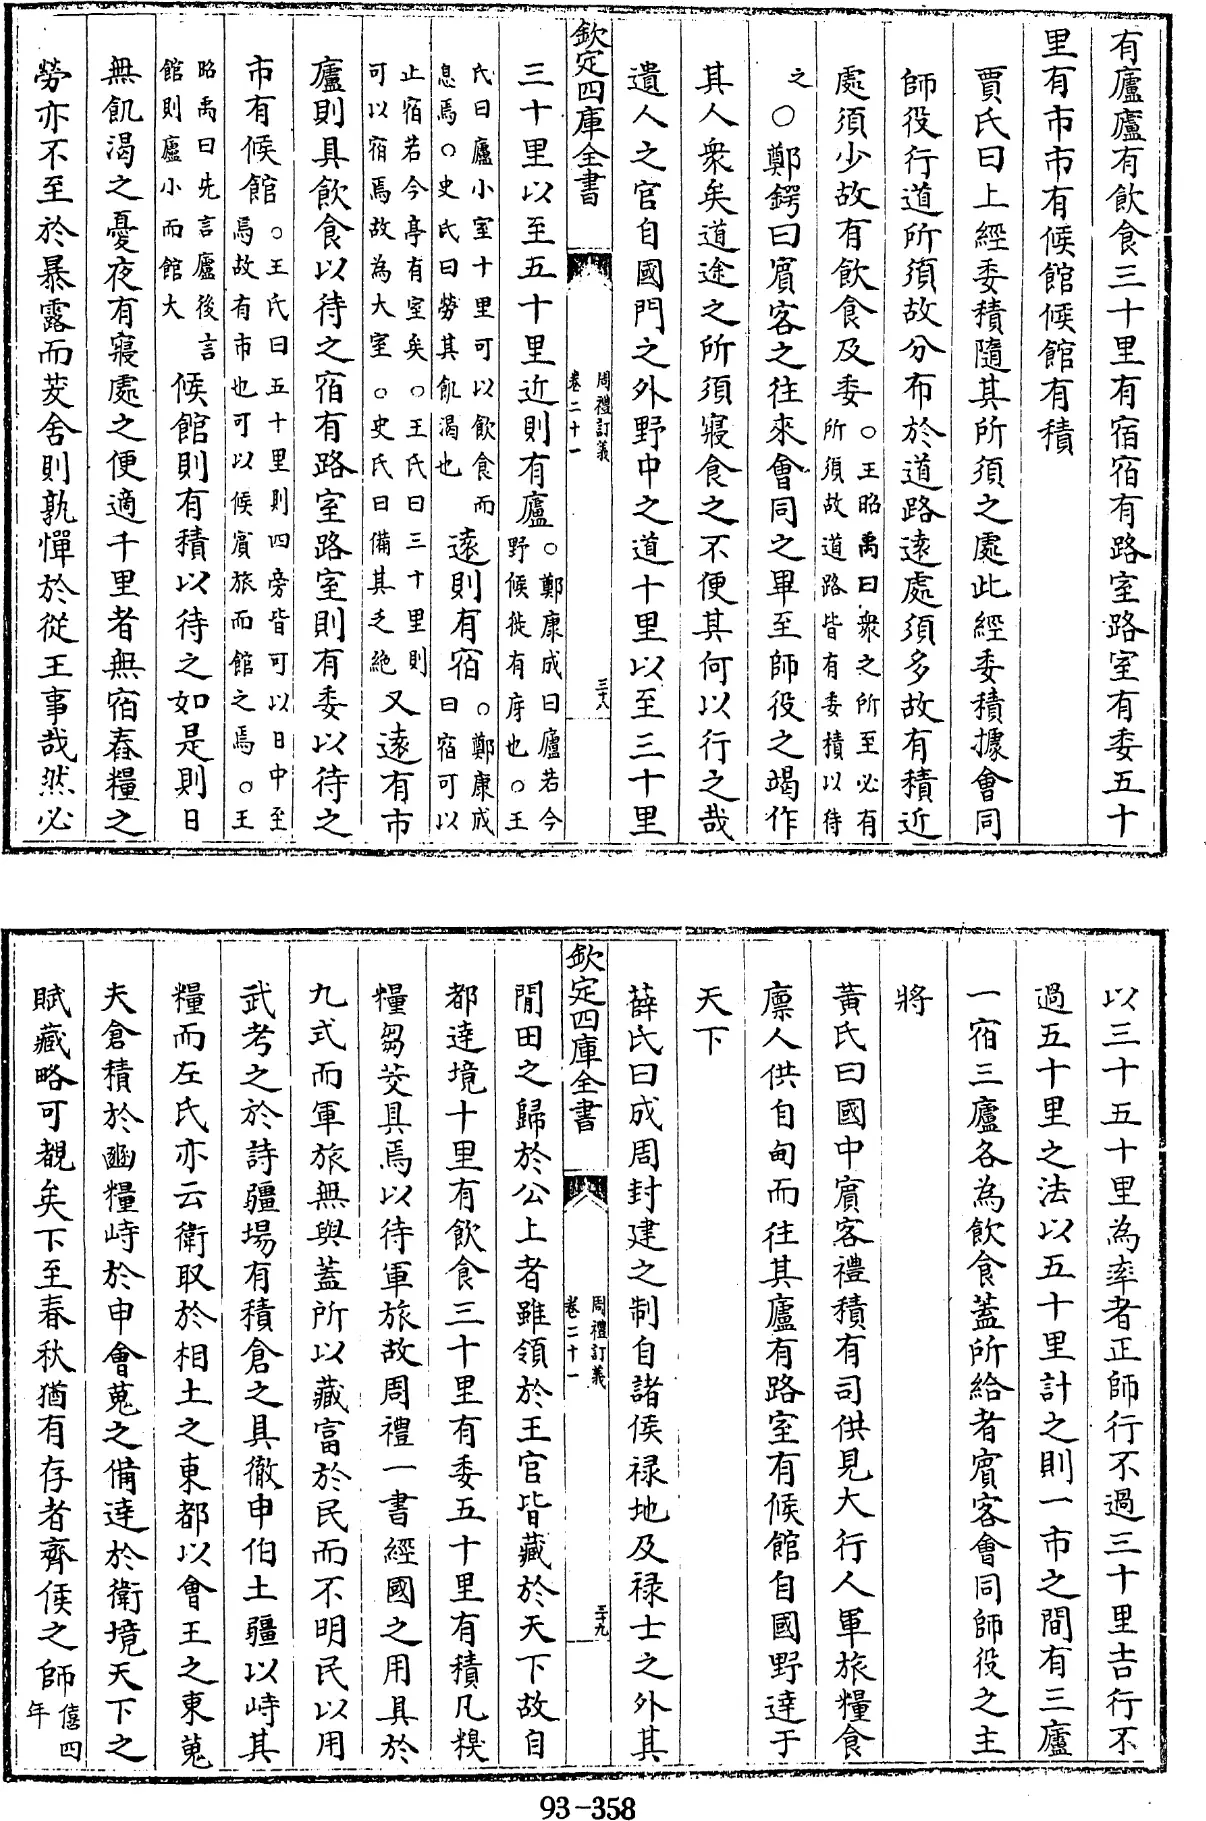 有廬廬有飲食三十里有宿宿有路室路室有委五十
里有市市有候館候館有積
賈氏曰上經委積隨其所須之處此經委積據會同
師役行道所須故分布於道路遠處須多故有積近
處須少故有飲食及委○王昭禹曰衆之所至必有
所須故道路皆有委積以待
之○鄭鍔曰賓客之往來會同之畢至師役之竭作
其人衆矣道途之所須寢食之不便其何以行之哉
遺人之官自國門之外野中之道十里以至三十里
欽定四庫全書
周禮訂義
卷二十一
三十八
三十里以至五十里近則有廬○鄭康成曰廬若今
野候徙有庌也○王
氏曰廬小室十里可以飲食而
息焉○史氏曰勞其飢渴也
遠則有宿○鄭康成
曰宿可以
止宿若今亭有室矣○王氏曰三十里則
可以宿焉故為大室○史氏曰備其乏絶
又遠有市
廬則具飲食以待之宿有路室路室則有委以待之
市有候館○王氏曰五十里則四旁皆可以日中至
焉故有市也可以候賓旅而館之焉○王
昭禹曰先言廬後言
館則廬小而館大
候館則有積以待之如是則日
無飢渴之憂夜有寢處之便適千里者無宿舂糧之
勞亦不至於暴露而茇舍則孰憚於從王事哉然必
以三十五十里為率者正師行不過三十里吉行不
過五十里之法以五十里計之則一市之間有三廬
一宿三廬各為飲食蓋所給者賓客會同師役之主
將
黃氏曰國中賓客禮積有司供見大行人軍旅糧食
廪人供自甸而往其廬有路室有候館自國野達于
天下
薛氏曰成周封建之制自諸侯禄地及禄士之外其
欽定四庫全書
周禮訂義
卷二十一
三十九
閒田之歸於公上者雖領於王官皆藏於天下故自
都達境十里有飲食三十里有委五十里有積凡糗
糧芻茭具焉以待軍旅故周禮一書經國之用具於
九式而軍旅無與蓋所以藏富於民而不明民以用
武考之於詩疆場有積倉之具徹申伯土疆以峙其
糧而左氏亦云衛取於相土之東都以會王之東蒐
夫倉積於豳糧峙於申會蒐之備達於衛境天下之
賦藏略可覩矣下至春秋猶有存者齊侯之師僖四
年
93-358